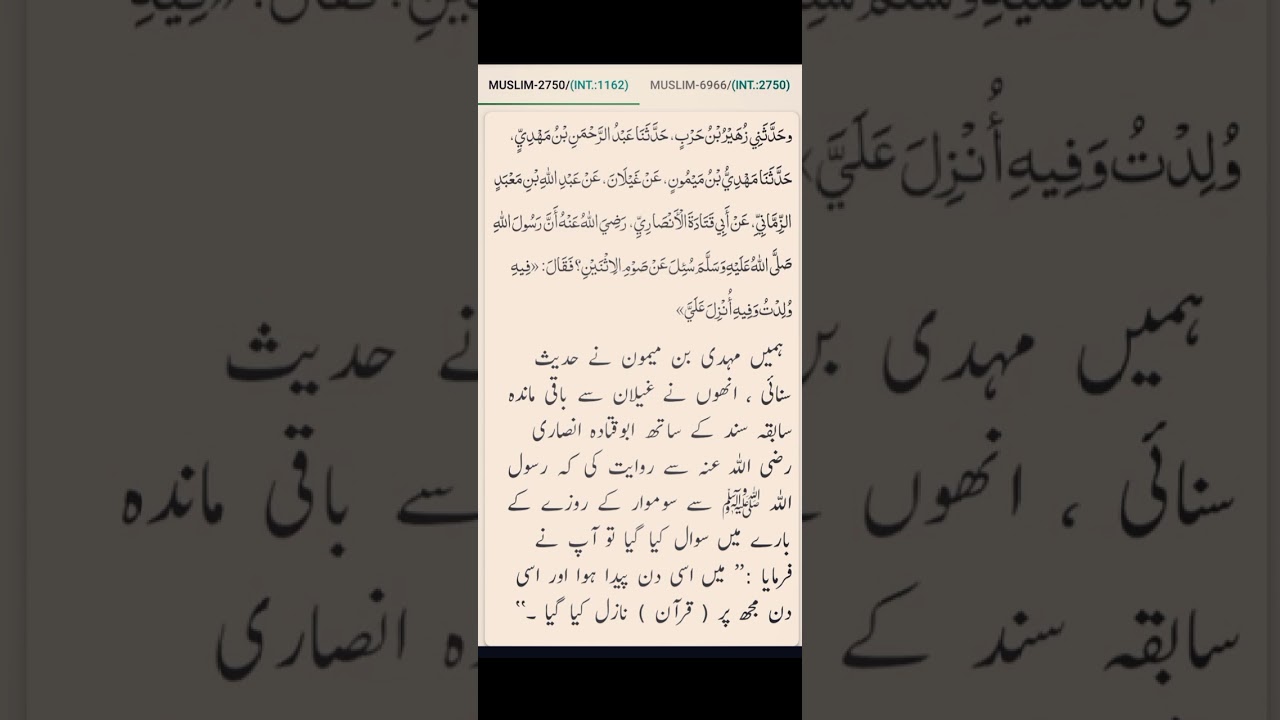 MUSLIM-2750/(INT.:1162)
MUSLIM-6966/(INT.:2750)
وحَدَّثَنِي زُهَيْرُ بْنُ حَرْبٍ، حَدَّثَنَا عَبْدُ الرَّحْمَنِ بْنُ مَهْدِيٍّ،
حَدَّثَنَا مَهْدِيُّ بْنُ مَيْمُونٍ، عَنْ غَيْلَانَ، عَنْ عَبْدِ اللهِ بْنِ مَعْبَدٍ
الزِّمَّانِيِّ، عَنْ أَبِي قَتَادَةَ الْأَنْصَارِيِّ، رَضِيَ اللهُ عَنْهُ أَنَّ رَسُولَ اللهِ
صَلَّى اللهُ عَلَيْهِ وَسَلَّمَ سُئِلَ عَنْ صَوْمِ الِاثْنَيْنِ؟ فَقَالَ: «فِيهِ
وُلِدْتُ وَفِيهِ أُنْزِلَ عَلَيَّ»
ہمیں مہدی بن میمون نے حدیث
سنائی ، انھوں نے غیلان سے باقی ماندہ
سابقہ سند کے ساتھ ابوقتادہ انصاری
رضی اللہ عنہ سے روایت کی کہ رسول
اللہ ﷺ سے سوموار کے روزے کے
بارے میں سوال کیا گیا تو آپ نے
فرمایا :” میں اسی دن پیدا ہوا اور اسی
دن مجھ پر ( قرآن ) نازل کیا گیا ۔“